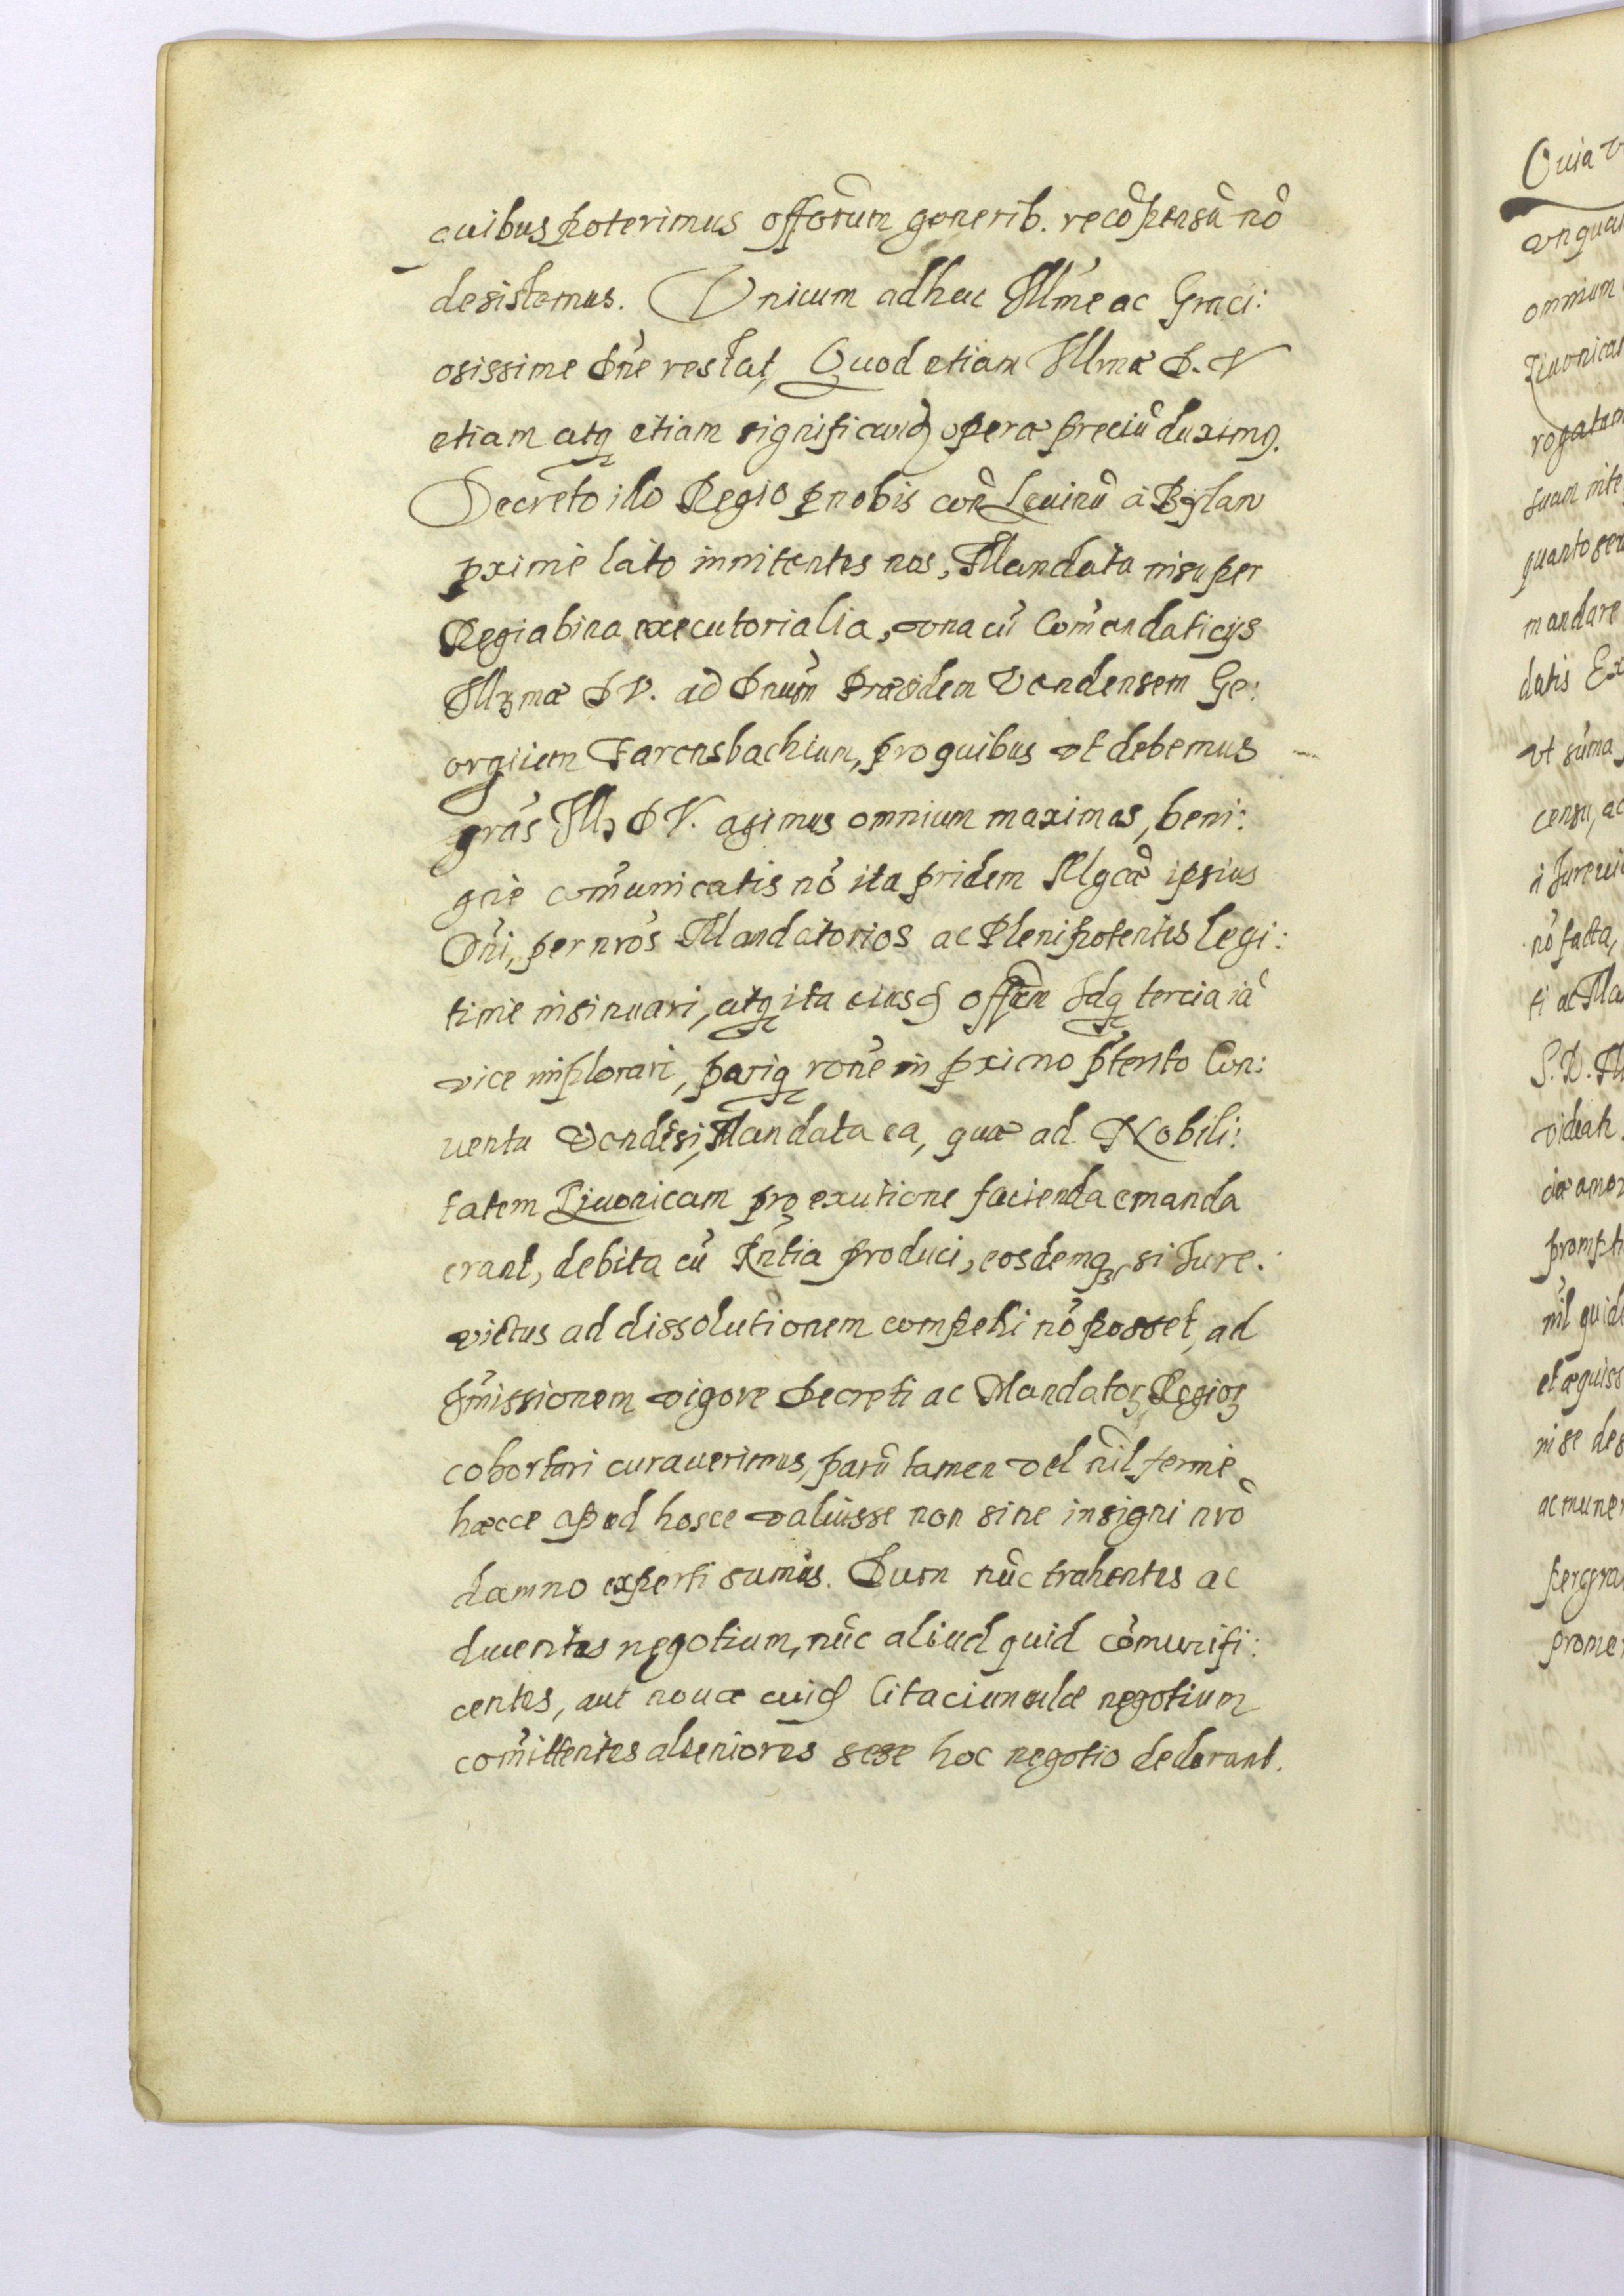 quibus poterimus offorum generib. recōpensū nō
desistemus. Vnicum adhuc Illme ac Graci:
osissime Dne restat, Quod etiam Illmæ D. V
etiam atq etiam significand operæ preciū duxim9.
Decreto illo Regio p nobis con Leuinū à Bÿlaw
pxime lato innitentes nos, Mandata insuper
Regia bina executorialia, vna cū Comendaticijs
Illmæ D V. ad Dnum Præsidem Vendensem Ge:
orgium Farensbachium, pro quibus vt debemus
gras Ill D V. agimus omnium maximas, beni:
gne comunicatis nō ita pridem Mgcæ ipsius
Dni, per nros Mandatorios ac Plenipotentes legi:
time insinuari, atq ita eiusd offm Idq tercia iā
vice implorari, pariq rone in pximo ptento Con:
uentu Vendēsi, Mandata ea, quæ ad Nobili:
tatem Liuonicam pro exutione facienda emanda
erant, debita cū Rntia produci, eosdemq, si Iure:
victus ad dissolutionem compelli nō posset, ad
missionem vigore Decreti ac Mandator Regior
cohortari curauerimus, parū tamen vel nil ferme
hæcce apud hosce valuisse non sine insigni nrō
damno experti sumus. Dum nūc trahentes ac
ducentes negotium, nūc aliud quid comunifi:
centes, aut nouæ cuid Citaciunculæ negotium
comittentes alieniores sese hoc negotio dederant.
Quia
omnium
rogatam
suam
mandare
datis
vt suma
nō facta,